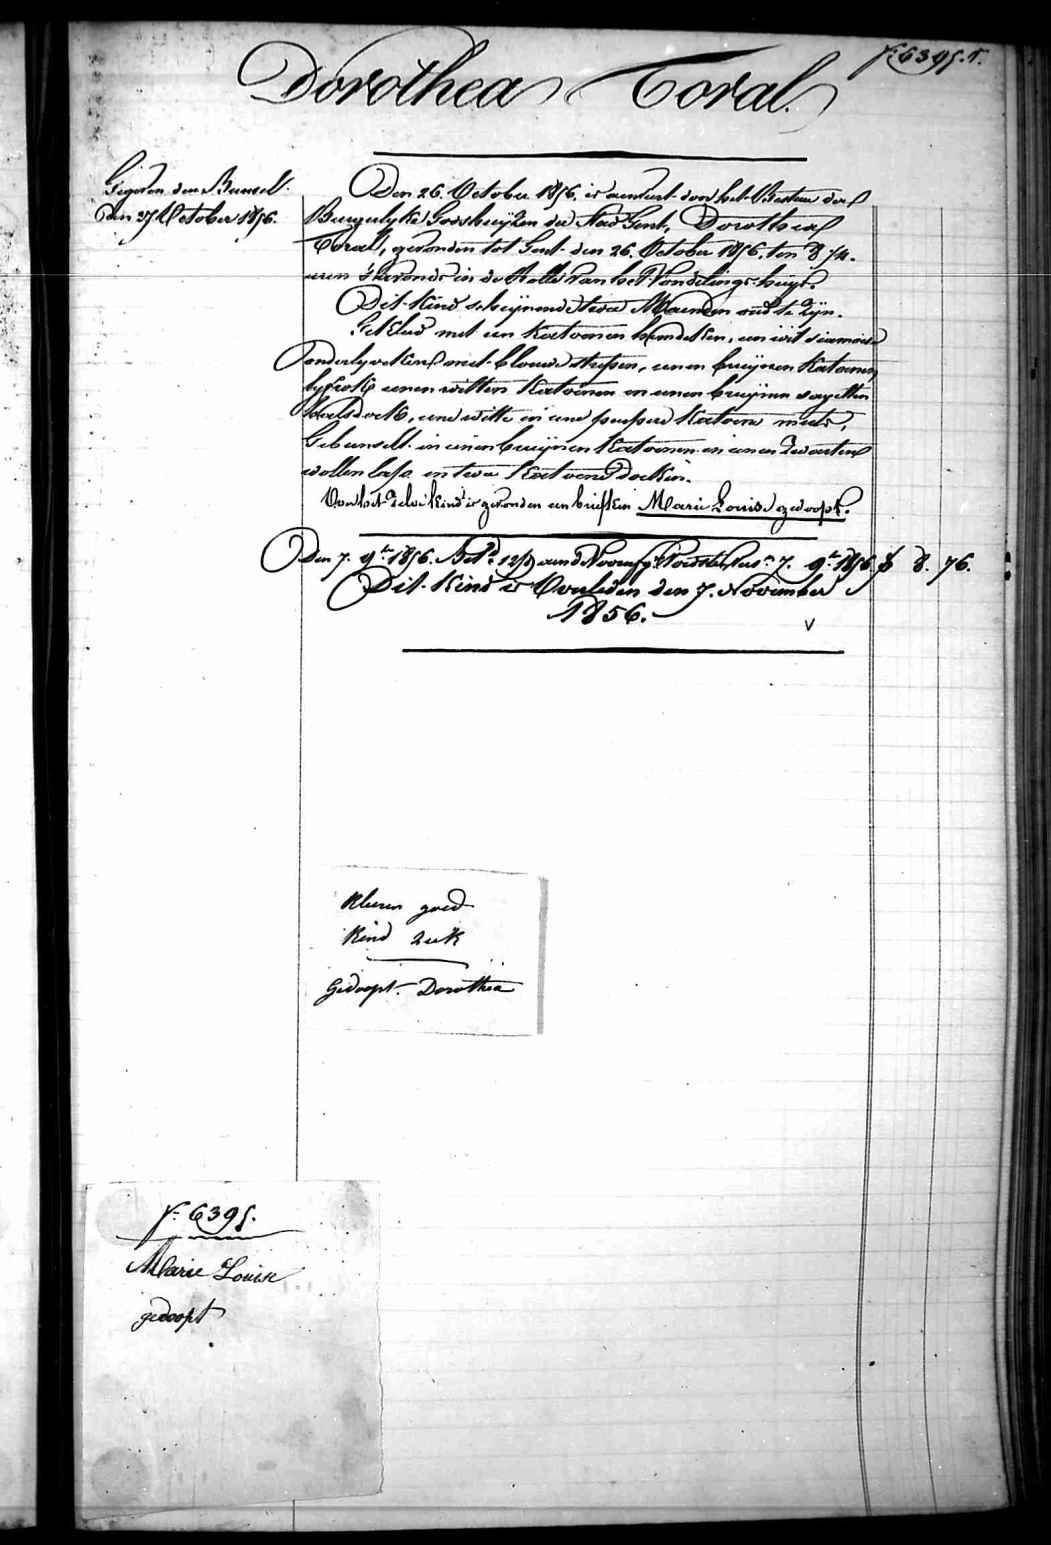 f. 6395. 1.
Dorothea Toral.
Gegeven den Bunsell.
den 27 October 1856.
Den 26. October 1856. is aenveert door het Bestuer der
Burgerlyke Godshuijzen der Stad Gent, Dorothea
Toral, gevonden tot Gent den 26. October 1856. ten 8 3/4.
uren s'avonds in de Rolle van het Vondelings-huijs.
Dit Kind schynende twee Maenden oud te zijn.
Gekleed met een Katoenen hemdeken, een wit siamoise
onderlyveken met blauwe strepen, eenen bruynen Katoenen
eenen witten Katoenen en eenen bruynen sayetten
Neusdoek, eene witte en eene peerpere Katoene muts,
Gebunselt in eenen bruynen Katoenen en eenen zwarten
wollen en twee Katoene Doeken.
Van het zelve kind is gevonden een briefken Marie Louise gedoopt.
Den 7. 9br 1856. Betd 12 aend 7. 9br 1856. f 8. 76.
Dit Kind is Overleden den 7. November
1856.
V
Kleeren goed
Kind ziek
Gedoopt Dorothea
f. 6395.
Marie Louise
gedoopt